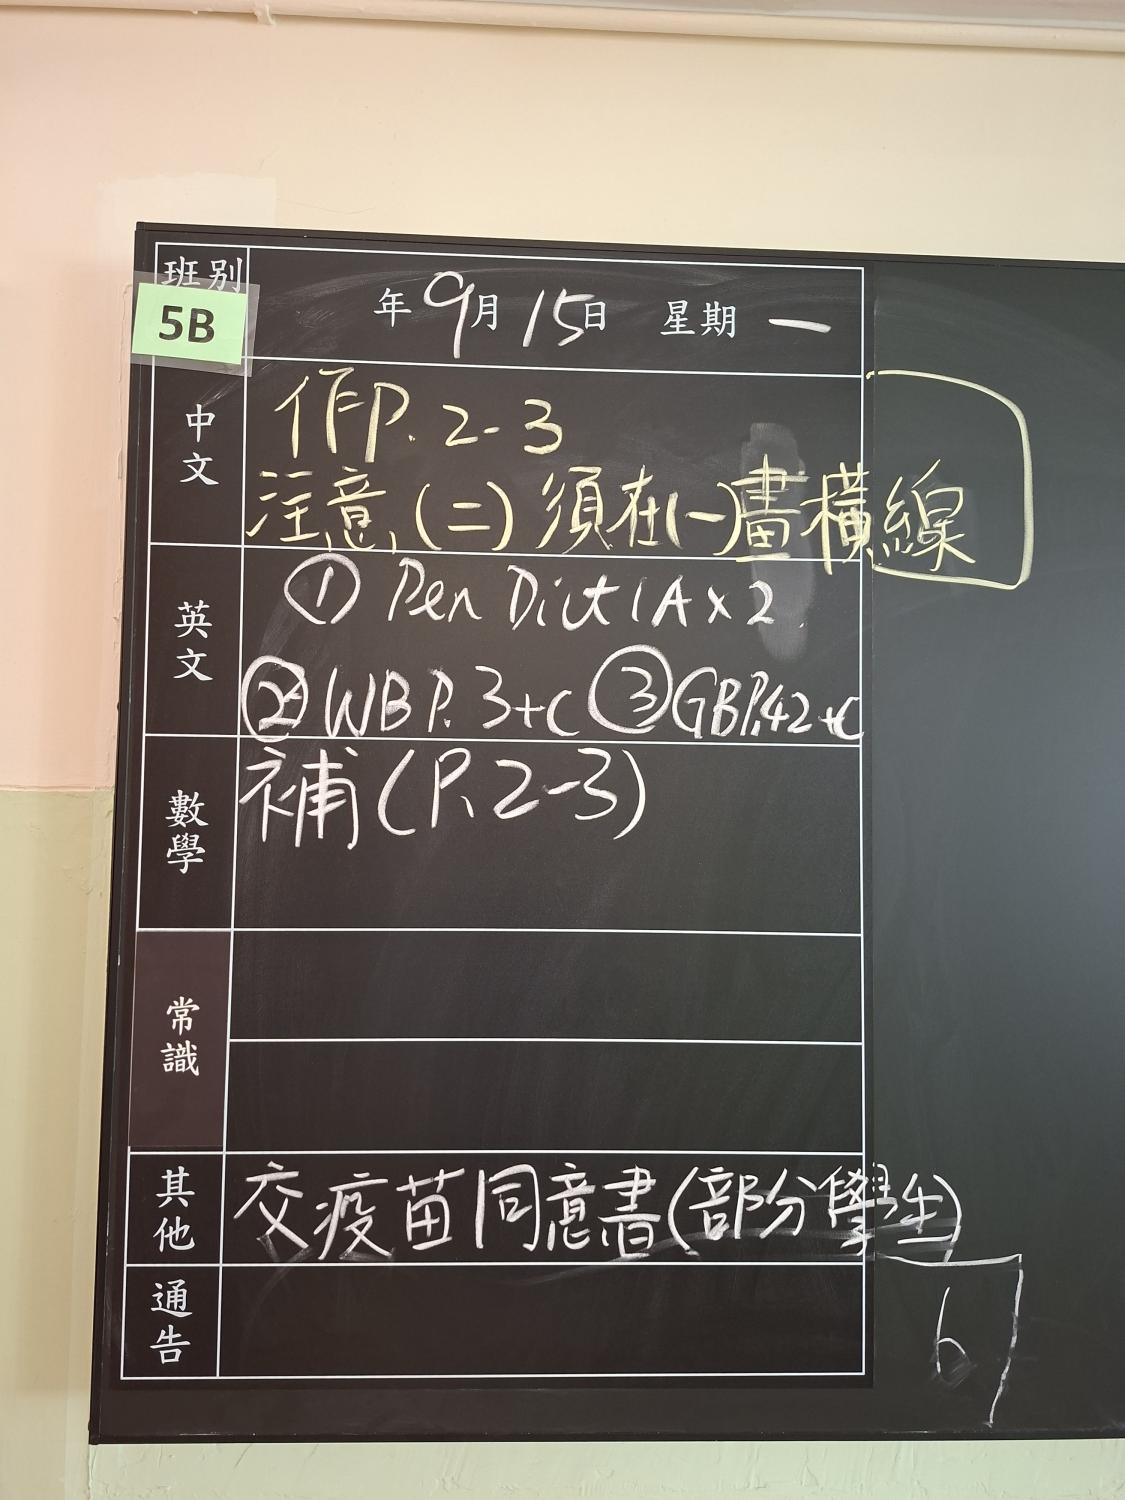 班別
5B
年9月15日 星期一
中文
作P.2-3
注意,(二)須在(一)畫橫線
英文
① Pen Dict 1A x 2.
② WB P.3+C ③ GB P.42+C
數學
補(P.2-3)
常識
其他
交疫苗同意書(部分學生)
通告
6